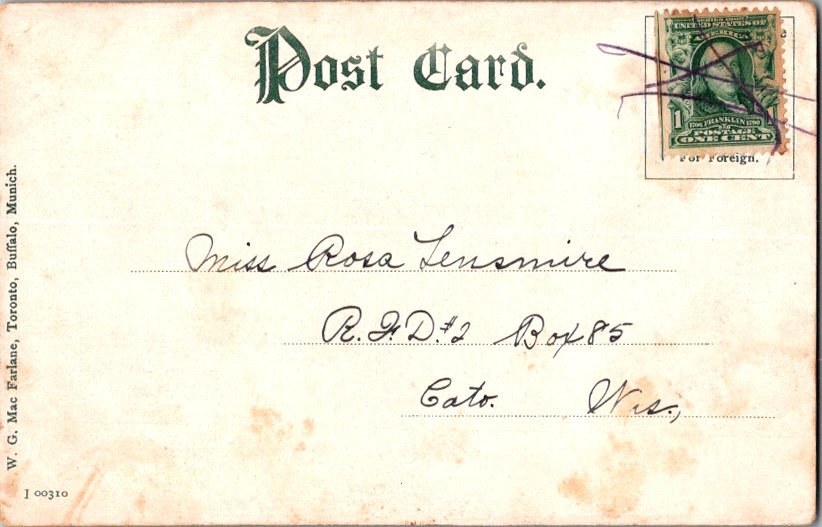 Post Card.
SERIES 1902
UNITED STATES OF
AMERICA
1
1706 FRANKLIN 1790
POSTAGE
ONE CENT
For Foreign.
Miss Rosa Lensmire
R.F.D. #2 Box 85
Cato. Wis.,
W. G. Mac Farlane, Toronto, Buffalo, Munich.
J 00310